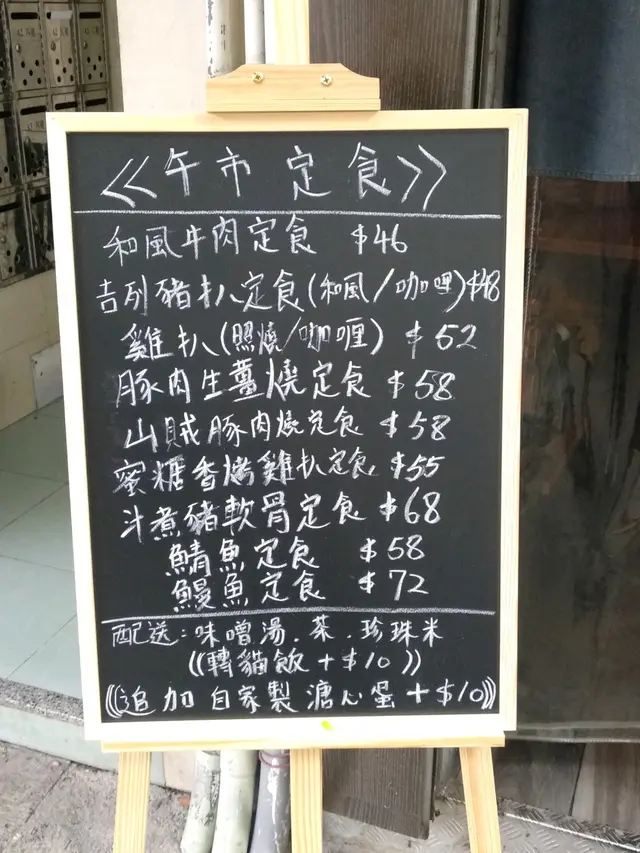 <<午市定食>>
和風牛肉定食 $46
吉列豬扒定食(和風/咖喱)$48
雞扒(照燒/咖喱) $52
豚肉生薑燒定食 $58
山賊豚肉燒定食 $58
蜜糖香烤雞扒定食 $55
汁煮豬軟骨定食 $68
鯖魚定食 $58
鰻魚定食 $72
配送:味噌湯.茶.珍珠米
((轉貓飯+$10))
((追加自家製溏心蛋+$10))